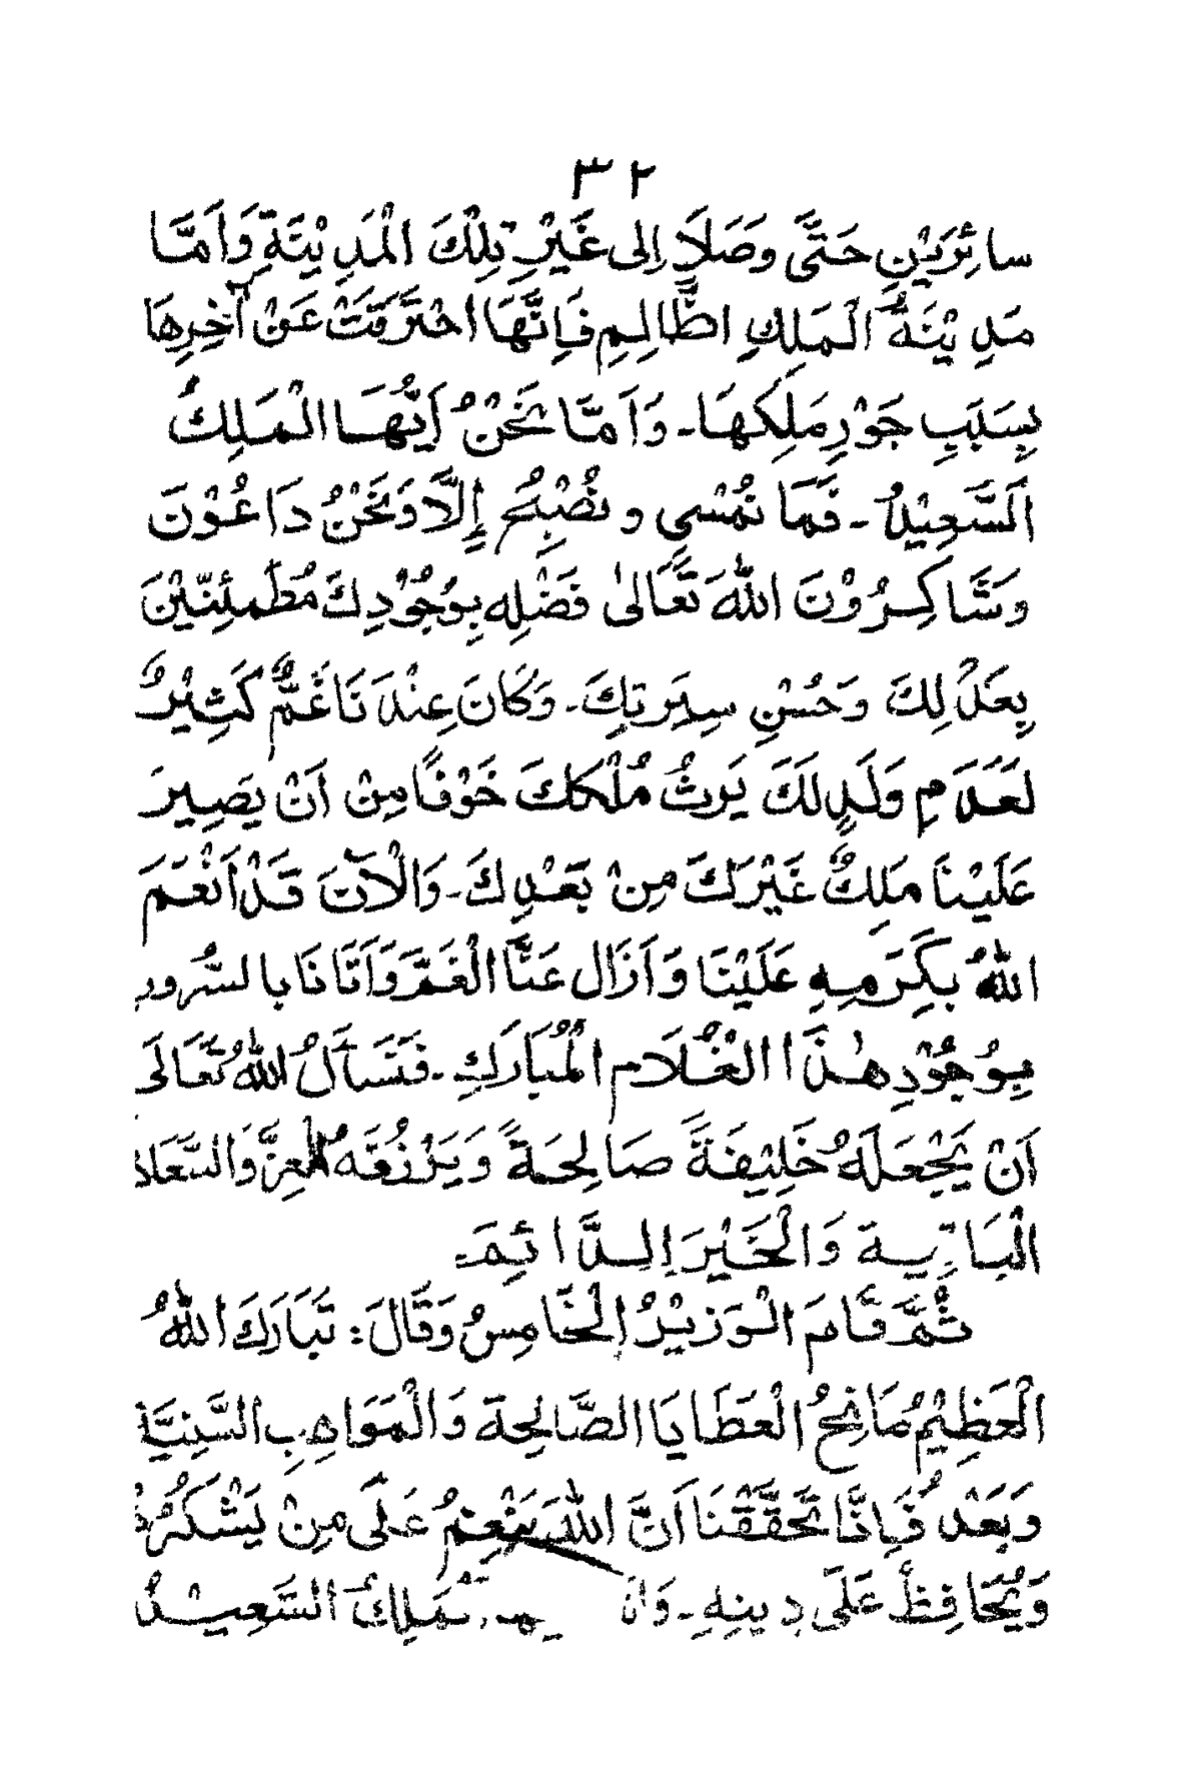 ٣٢
سائِرَيْنِ حَتَّى وصَلَا إلى غَيْرِ تِلْكَ الْمَدِيْنَةِ وَاَمَّا
مَدِيْنَةُ الْمَلِكِ اظَّالِمِ فَإِنَّهَا احْتَرَقَتْ عَنْ آخِرِهَا
بِسَبَبِ جَوْرِ مَلِكِهَا ـ وَاَمَّا نَحْنُ اَيُّهَا الْمَلِكُ
اَلسَّعِيْدُ ـ فَمَا نُمْسِي و نُصْبِحُ إِلَّا وَنَحْنُ دَاعُوْنَ
وَشَاكِرُوْنَ اللّٰهَ تَعَالىٰ فَضْلِه بِوُجُوْدِكَ مُطْمئِنِّيْنَ
بِعَدْلِكَ وَحُسْنِ سِيَرتِكَ ـ وَكَانَ عِنْدَنَا غَمٌّ كَثِيْرٌ
لعَدَمِ وَلَدٍ لَكَ يَرِثُ مُلْكَكَ خَوْفًا مِنْ اَنْ يَصِيرَ
عَلَيْنَا مَلِكٌ غَيْرَكَ مِنْ بَعْدِكَ ـ وَالْآنَ قَدْ اَنْعَمَ
اللّٰهُ بِكَرَمِهِ عَلَيْنَا وَاَزَال عَنَّا الْغَمَّ وَاَتَانَا بالسُّرور
بِوُجُوْدِ هٰذَا الْغُلَامِ الْمُبَارَكِ ـ فَنَسْأَلُ اللّٰهُ تَعَالَى
اَنْ يَجْعَلَهُ خَلِيْفَةً صَالِحَةً وَيَرْزُقَهُ الْعِزَّ وَالسَّعَاد
الْبَارِّية وَالْخَيْرَ الدَّائِمَ
ثُمَّ قَامَ الْوَزِيْرُ الْخَامِسُ وَقَالَ: تَبَارَكَ اللّٰهُ
الْعَظِيْمُ مَانِحُ الْعَطَايَا الصَّالِحة وَالْمَوَاهِبِ السَّنِيَّة
وَبَعْدُ فَإِنَّا تَحَقَّقْنَا اَنَّ اللّٰهَ يَنْعِمُ عَلَى مِنْ يَشْكُرُهُ
وَيُحَافِظُ عَلَى دِينِهِ ـ وَانَ مَلِكُ السَّعِيْدُ